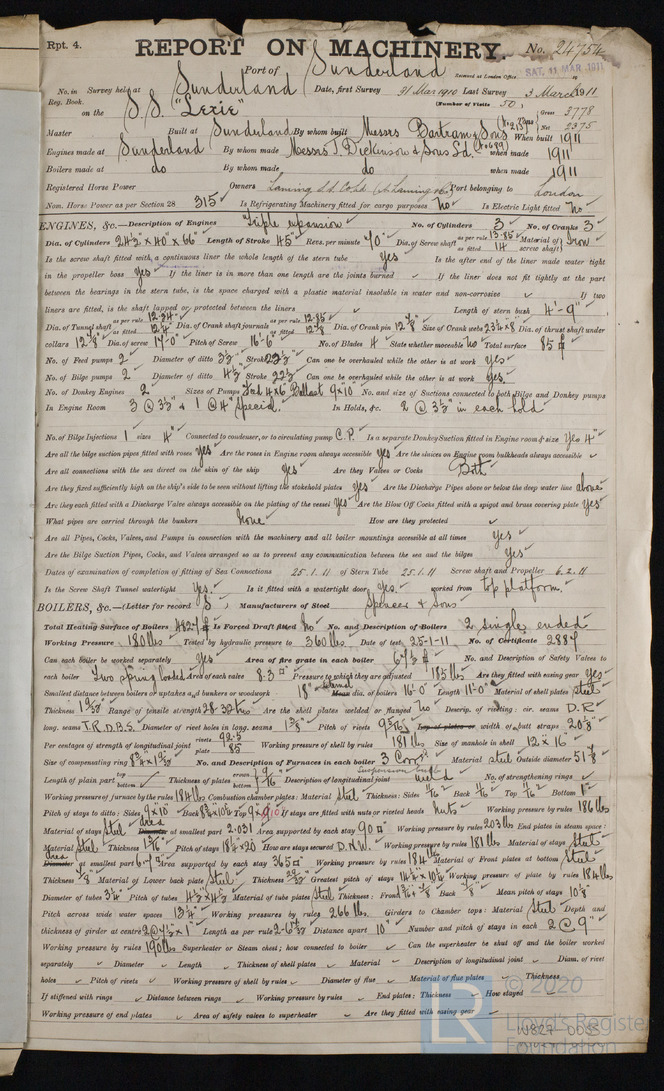 Rpt. 4.
REPORT ON MACHINERY. No. 24754
Port of Sunderland
Received at London Office SAT. 11 MAR 1911
No. in Survey held at Sunderland Date, first Survey 31 Mar 1910 Last Survey 3 March 1911
Reg. Book. (Number of Visits 50)
on the S.S. "Lexie" Tons Gross 3778 Net 2375
Master Built at Sunderland By whom built Messrs Bartram & Sons When built 1911
Engines made at Sunderland By whom made Messrs J. Dickinson & Sons Ld. when made 1911
Boilers made at do By whom made do when made 1911
Registered Horse Power Owners Port belonging to London
Nom. Horse Power as per Section 28 315 Is Refrigerating Machinery fitted for cargo purposes No Is Electric Light fitted No
ENGINES, &c.—Description of Engines Triple expansion No. of Cylinders 3 No. of Cranks 3
Dia. of Cylinders 24½ x 40 x 66" Length of Stroke 45" Revs. per minute 70 Dia. of Screw shaft as per rule 13.85 as fitted 14 Material of screw shaft Iron
Is the screw shaft fitted with a continuous liner the whole length of the stern tube Yes Is the after end of the liner made water tight
in the propeller boss Yes If the liner is in more than one length are the joints burned If the liner does not fit tightly at the part
between the bearings in the stern tube, is the space charged with a plastic material insoluble in water and non-corrosive If two
liners are fitted, is the shaft lapped or protected between the liners Length of stern bush 4'-9"
Dia. of Tunnel shaft as per rule 12.24 as fitted 12¼ Dia. of Crank shaft journals as per rule 12.85 as fitted 12⅞ Dia. of Crank pin 12⅞ Size of Crank webs 23¼ x 8 Dia. of thrust shaft under
collars 12⅞ Dia. of screw 17'-0" Pitch of Screw 16'-6" No. of Blades 4 State whether moveable No Total surface 85
No. of Feed pumps 2 Diameter of ditto 3½ Stroke 22½ Can one be overhauled while the other is at work Yes
No. of Bilge pumps 2 Diameter of ditto 4½ Stroke 22½ Can one be overhauled while the other is at work Yes.
No. of Donkey Engines 2 Sizes of Pumps Feed 4x6 Ballast 9x10 No. and size of Suctions connected to both Bilge and Donkey pumps
In Engine Room 3 @ 3½" & 1 @ 4" Special. In Holds, &c. 2 @ 3½" in each hold
No. of Bilge Injections 1 sizes 4" Connected to condenser, or to circulating pump C.P. Is a separate Donkey Suction fitted in Engine room & size Yes 4"
Are all the bilge suction pipes fitted with roses Yes Are the roses in Engine room always accessible Yes Are the sluices on Engine room bulkheads always accessible
Are all connections with the sea direct on the skin of the ship Yes Are they Valves or Cocks Both
Are they fixed sufficiently high on the ship's side to be seen without lifting the stokehold plates Yes Are the Discharge Pipes above or below the deep water line above
Are they each fitted with a Discharge Valve always accessible on the plating of the vessel Yes Are the Blow Off Cocks fitted with a spigot and brass covering plate Yes
What pipes are carried through the bunkers None How are they protected
Are all Pipes, Cocks, Valves, and Pumps in connection with the machinery and all boiler mountings accessible at all times Yes
Are the Bilge Suction Pipes, Cocks, and Valves arranged so as to prevent any communication between the sea and the bilges Yes
Dates of examination of completion of fitting of Sea Connections 25.1.11 of Stern Tube 25.1.11 Screw shaft and Propeller 6.2.11
Is the Screw Shaft Tunnel watertight Yes. Is it fitted with a watertight door Yes. worked from top platform.
BOILERS, &c.—(Letter for record S) Manufacturers of Steel Spencer & Sons
Total Heating Surface of Boilers Is Forced Draft fitted No No. and Description of Boilers 2 single ended
Working Pressure 180 lbs Tested by hydraulic pressure to 360 lbs Date of test 25-1-11 No. of Certificate 2887
Can each boiler be worked separately Yes Area of fire grate in each boiler No. and Description of Safety Valves to
each boiler Two spring loaded Area of each valve 8.3 Pressure to which they are adjusted 185 lbs Are they fitted with easing gear Yes
Smallest distance between boilers or uptakes and bunkers or woodwork 18" Mean dia. of boilers 16'-0" Length 11'-0" Material of shell plates Steel
Thickness Range of tensile strength 28-32 tons Are the shell plates welded or flanged No Descrip. of riveting: cir. seams D.R.
long. seams T.R.D.B.S. Diameter of rivet holes in long. seams Pitch of rivets Lap of plates or width of butt straps 20⅞
Per centages of strength of longitudinal joint rivets 92.5 plate 85 Working pressure of shell by rules 181 lbs Size of manhole in shell 12 x 16"
Size of compensating ring No. and Description of Furnaces in each boiler 3 Material Steel Outside diameter
Length of plain part top bottom Thickness of plates crown bottom 9/16 Description of longitudinal joint welded No. of strengthening rings
Working pressure of furnace by the rules 184 lbs Combustion chamber plates: Material Steel Thickness: Sides Back Top Bottom
Pitch of stays to ditto: Sides 9x10 Back Top If stays are fitted with nuts or riveted heads Nuts Working pressure by rules 186 lbs
Material of stays Steel Diameter area at smallest part 2.031 Area supported by each stay 90 Working pressure by rules 203 lbs End plates in steam space:
Material Steel Thickness Pitch of stays 18¼ x 20 How are stays secured D.N.W. Working pressure by rules 181 lbs Material of stays Steel
Diameter area at smallest part Area supported by each stay 365 Working pressure by rules 184 lbs Material of Front plates at bottom Steel
Thickness Material of Lower back plate Steel Thickness Greatest pitch of stays Working pressure of plate by rules 184 lbs
Diameter of tubes 3¼ Pitch of tubes 4½ x 4½ Material of tube plates Steel Thickness: Front Back Mean pitch of stays
Pitch across wide water spaces 13¼ Working pressures by rules 266 lbs Girders to Chamber tops: Material Steel Depth and
thickness of girder at centre Length as per rule Distance apart 10" Number and pitch of stays in each 2 @ 9"
Working pressure by rules 190 lbs Superheater or Steam chest; how connected to boiler Can the superheater be shut off and the boiler worked
separately Diameter Length Thickness of shell plates Material Description of longitudinal joint Diam. of rivet
holes Pitch of rivets Working pressure of shell by rules Diameter of flue Material of flue plates Thickness
If stiffened with rings Distance between rings Working pressure by rules End plates: Thickness How stayed
Working pressure of end plates Area of safety valves to superheater Are they fitted with easing gear
© 2020
Lloyd's Register
Foundation
W827-0035